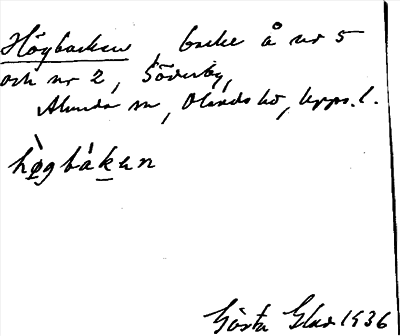 Högbacken, backe å nr 5
och nr 2, Söderby,
Alunda sn, Olands hd, Upps. l.
hø̀gbáken
Gösta Glad 1936